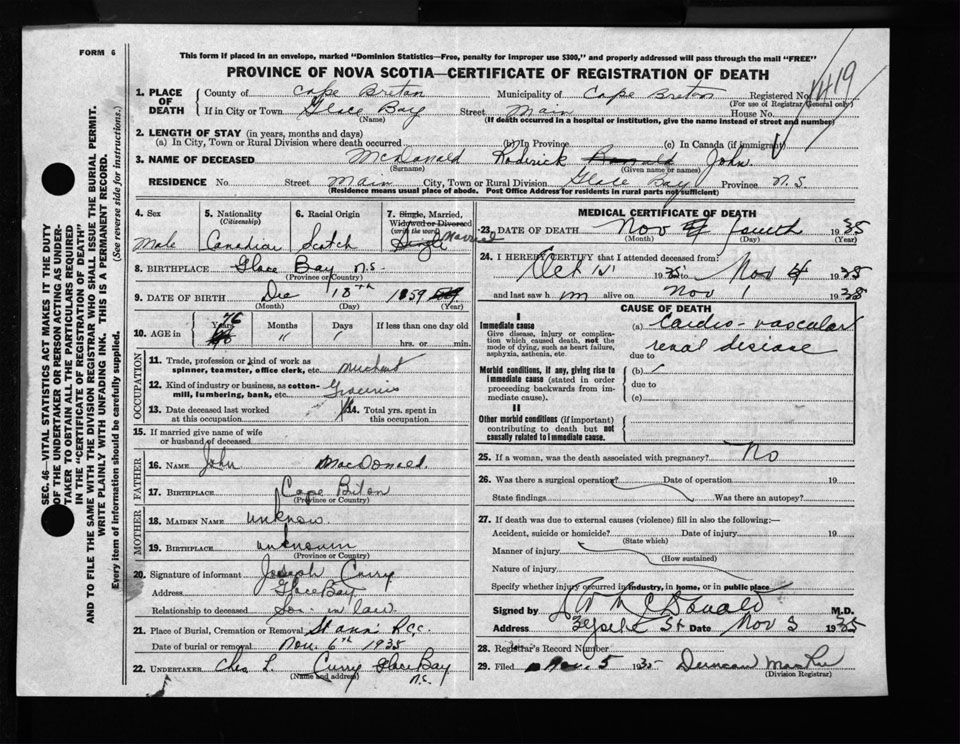 FORM 6
This form if placed in an envelope, marked "Dominion Statistics—Free, penalty for improper use $300," and properly addressed will pass through the mail "FREE"
PROVINCE OF NOVA SCOTIA—CERTIFICATE OF REGISTRATION OF DEATH
1. PLACE OF DEATH
County of Cape Breton Municipality of Cape Breton Registered No. 1419
(For use of Registrar General only)
If in City or Town Glace Bay Street Main House No.
(Name) (If death occurred in a hospital or institution, give the name instead of street and number)
2. LENGTH OF STAY (in years, months and days)
(a) In City, Town or Rural Division where death occurred (b) In Province (c) In Canada (if immigrant)
3. NAME OF DECEASED McDonald Roderick Ronald John
(Surname) (Given name or names)
RESIDENCE No. Street Main City, Town or Rural Division Glace Bay Province N.S
(Residence means usual place of abode. Post Office Address for residents in rural parts not sufficient)
4. Sex Male
5. Nationality (Citizenship) Canadian
6. Racial Origin Scotch
7. Single, Married, Widowed or Divorced (write the word) Single Married
8. BIRTHPLACE Glace Bay N.S.
(Province or Country)
9. DATE OF BIRTH Dec 18th 1859
(Month) (Day) (Year)
10. AGE in Years 76 Months " Days " If less than one day old
hrs. or min.
OCCUPATION
11. Trade, profession or kind of work as spinner, teamster, office clerk, etc. Merchant
12. Kind of industry or business, as cotton-mill, lumbering, bank, etc. Groceries
13. Date deceased last worked at this occupation
14. Total yrs. spent in this occupation
15. If married give name of wife or husband of deceased
FATHER
16. NAME John MacDonald
17. BIRTHPLACE Cape Briton
(Province or Country)
MOTHER
18. MAIDEN NAME unknow.
19. BIRTHPLACE unknown
(Province or Country)
20. Signature of informant Joseph Curry
Address Glace Bay
Relationship to deceased Son-in law.
21. Place of Burial, Cremation or Removal St anns R.C.C.
Date of burial or removal Nov. 6th 1935
22. UNDERTAKER Chas L. Curry Glace Bay
(Name and address) N.S.
MEDICAL CERTIFICATE OF DEATH
23. DATE OF DEATH Nov fourth 1935
(Month) (Day) (Year)
24. I HEREBY CERTIFY that I attended deceased from:
Oct 15 1935 to Nov 4 1935
and last saw him alive on Nov 1 1935
CAUSE OF DEATH
I
Immediate cause
Give disease, injury or complication which caused death, not the mode of dying, such as heart failure, asphyxia, asthenia, etc.
(a) Cardio-vascular
renal disease
due to
Morbid conditions, if any, giving rise to immediate cause (stated in order proceeding backwards from immediate cause).
(b)
due to
(c)
II
Other morbid conditions (if important) contributing to death but not causally related to immediate cause.
25. If a woman, was the death associated with pregnancy? No
26. Was there a surgical operation? Date of operation 19
State findings Was there an autopsy?
27. If death was due to external causes (violence) fill in also the following:—
Accident, suicide or homicide? Date of injury 19
(State which)
Manner of injury
(How sustained)
Nature of injury
Specify whether injury occurred in industry, in home, or in public place
Signed by McDonald M.D.
Address St Date Nov 5 1935
28. Registrar's Record Number
29. Filed Nov. 5 1935 Duncan MacRae
(Division Registrar)
SEC. 46—VITAL STATISTICS ACT MAKES IT THE DUTY
OF THE UNDERTAKER OR PERSON ACTING AS UNDERTAKER
TO OBTAIN ALL THE PARTICULARS REQUIRED
IN THE "CERTIFICATE OF REGISTRATION OF DEATH"
AND TO FILE THE SAME WITH THE DIVISION REGISTRAR WHO SHALL ISSUE THE BURIAL PERMIT.
WRITE PLAINLY WITH UNFADING INK. THIS IS A PERMANENT RECORD.
Every item of information should be carefully supplied. (See reverse side for instructions.)